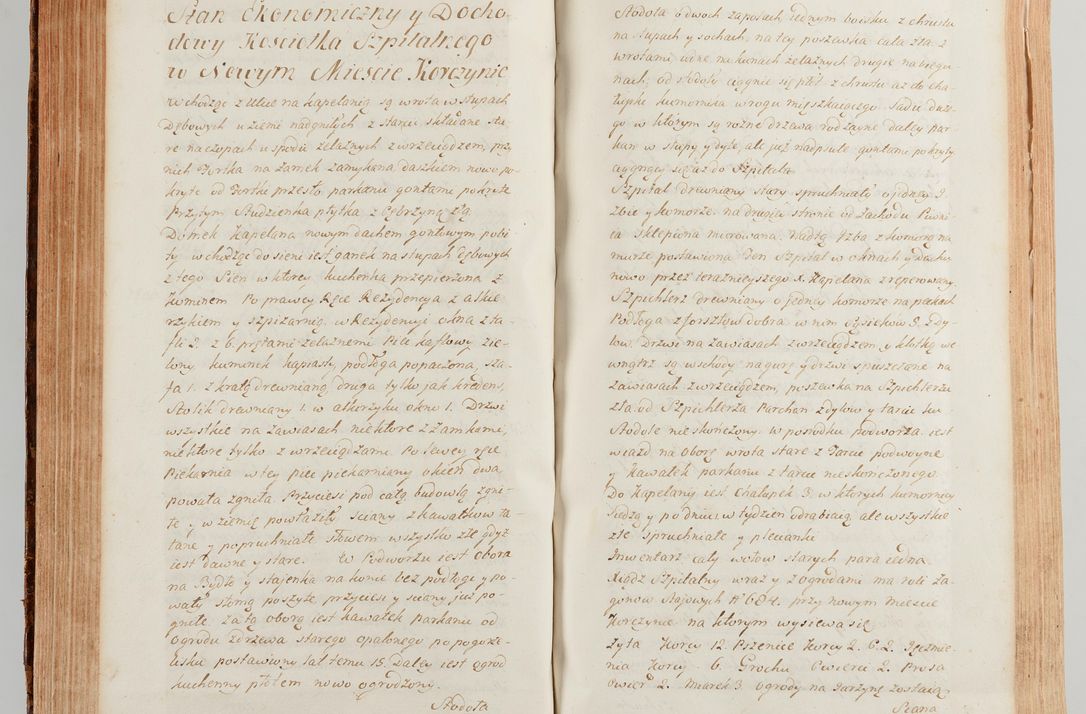 Stan Ekonomiczny y Docho-
dowy Kosciołka Szpitalnego
w Nowym Miescie Korczynie
wchodząc z ulice na kapelanią są wrota w słupach
Dębowych w ziemi nadgniłych z tarcic składane sta-
re na czopach u spodu żelaznych z wrzeciądzem, przy
nich Fortka na zamek zamykana daszkiem nowo po-
kryte od Fortki przęsło parkanu gontami pokryte
Przytym Studzienka płytka z Cębrzyną złą
Domek Kapelana nowym dachem gontowym pobi-
ty, wchodząc do sieni iest ganek na słupach dębowych
z tego Sien w ktorey kuchenka przepierzona z
Kominem Po prawey Ręce Rezydencya z alkie-
rzykiem y szpiżarnią, w Rezydencyi okna zła-
fli 2. z 6. prętami żelaznemi Piec kaflowy zie-
lony, kominek kapiasty, podłoga popaczona, sza-
fa 1. z kratą drewnianą, druga tylko jak kredens,
Stolik drewniany 1. w alkierzyku okno 1. Drzwi
wszystkie na zawiasach niektore z Zamkami,
niektore tylko z wrzeciądzami. Po lewey ręce
Piekarnia w tey piec piekarniany okien dwa
powała zgniła. Przyciesi pod całą budowlą zgni-
łe y w ziemię powłaziły sciany z kawałkow ła-
tane y popruchniałe słowem wszystko złe gdyż
iest dawne y stare. W Podworzu iest obora
na Bydło y stajenka na konie bez podłogi y po-
wały słomą poszyte przyciesi y sciany już po-
gniłe za tą oborą iest kawałek parkanu od
ogrodu z drzewa starego opalonego po pogorze-
lisku postawiony lat temu 15. Daley iest ogrod
kuchenny płotem nowo ogrodzony.
Stodoła
Stodoła o dwoch zapolach iednym boisku z chrustu
na słupach y sochach, na tey poszewka cała zła z
wrotami iedne na kunach żelaznych drugie na biegu-
nach; od stodoły ciągnie się płot z chrustu aż do cha-
łupki komornika w rogu mięszkaiącego. Sadu duże-
go w ktorym są rożne drzewa rodzayne daley par-
kan w słupy y dyle, ale już nadpsute gontami pokryty
ciągnący się aż do Szpitala
Szpital drewniany stary spruchniały o jedney I-
zbie y komorze. na drugiey stronie od zachodu Piwni-
ca sklepiona murowana. Nad tą Izba z komorą na
murze postawiona Ten Szpital w oknach y dachu
nowo przez teraznieyszego X. Kapelana zreperowany.
Szpichlerz drewniany o jedney komorze na pickach
Podłoga z forsztow dobra w nim sąsiekow 5. z dy-
low. Drzwi na zawiasach z wrzeciądzem y kłotką we
wnątrz są wschody na gurę y drzwi spuszczane na
zawiasach z wrzeciądzem, poszewka na Szpichlerzu
zła. od Szpichlerza Parchan z dylow y tarcic ku
Stodole nieskończony. w posrodku podworza iest
wiazd na oborę wrota stare z Tarcic podwoyne
y kawałek parkanu z tarcic nieskończonego.
Do Kapelanij iest Chałupek 3. w ktorych komornicy
siedzą y po dniu, w tydzien odrabiaią ale wszystkie
złe spruchniałe y plecianki
Inwentarz cały wołow starych para iedna.
Xiądz Szpitalny wraz y z ogrodami ma roli Za-
gonow Stajowych N° 684. przy nowym Miescie
Korczynie na ktorym wysiewa się
Żyta Korcy 12. Pszenicy Korcy 2. C. 2. Jęczmie-
nia Korcy - 6. Grochu Cwierci 2. Prosa
Cwierć 2. Miarek 3. ogrody na Jarzynę zostaią
Siana